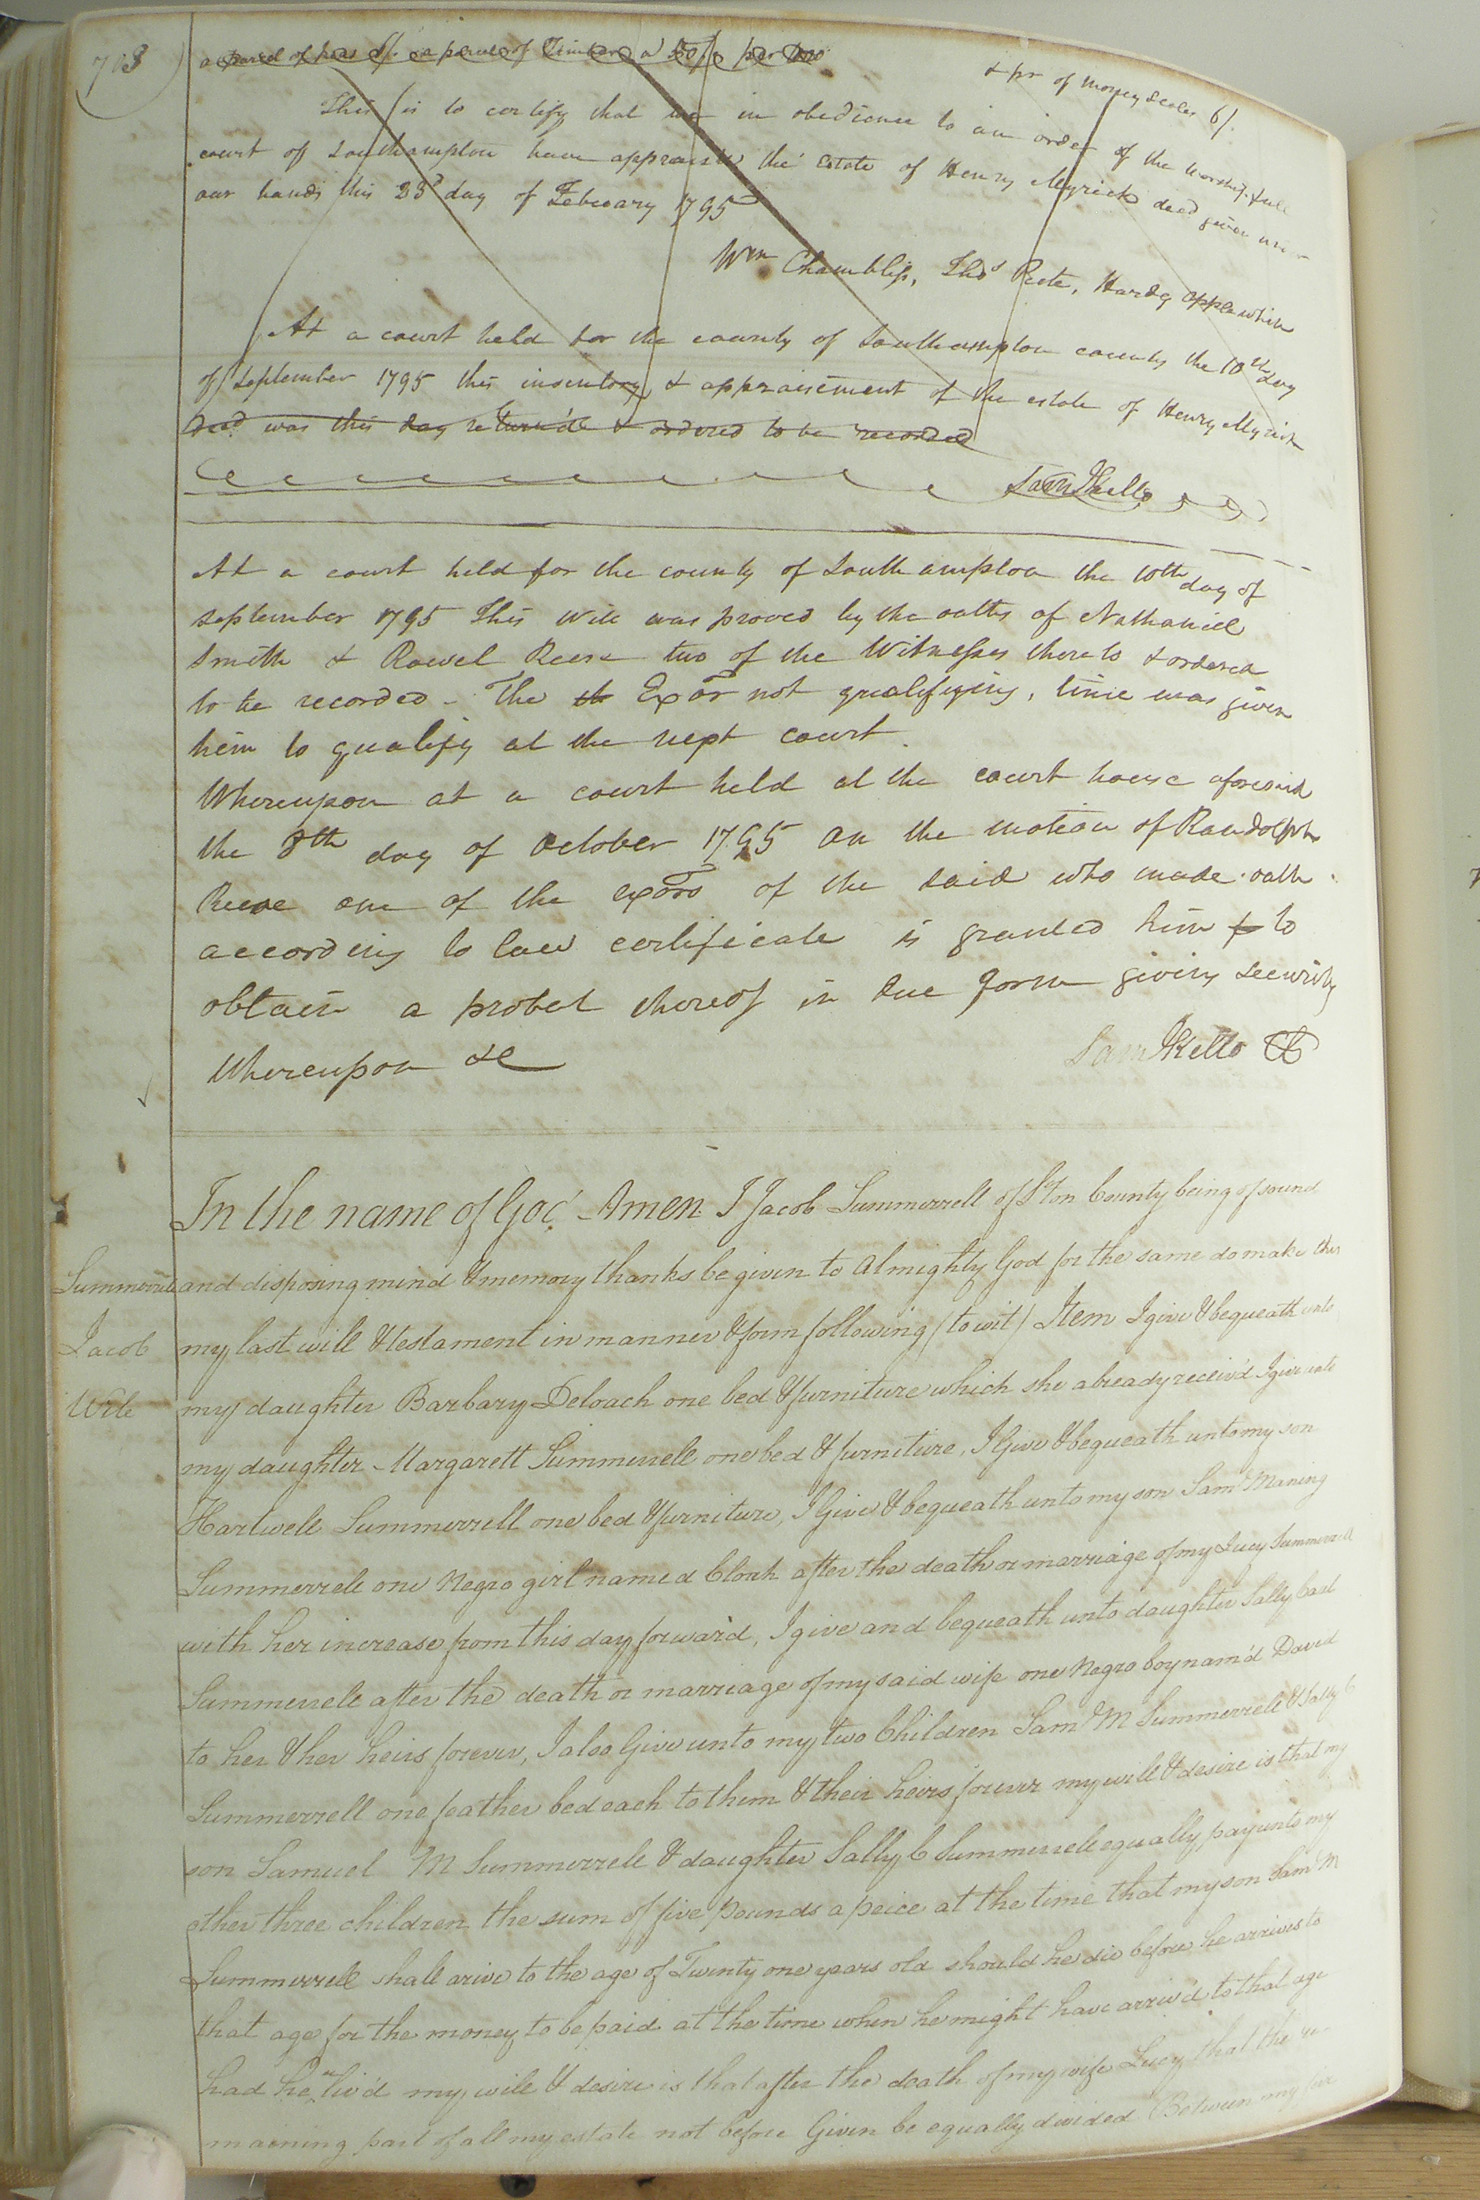 708
a parcel of do a parcel of Timber a 50/ per
& pr of money scales 6/.
This is to certify that we in obedience to an order of the worshipfull
court of Southampton have appraised the Estate of Henry Myrick decd given un-
our hands this 23d day of February 1795
Wm Chambliss, Thos Pete, Hardy Applewhite
At a court held for the county of Southampton county the 10th day
of September 1795 this inventory & appraisement of the estate of Henry Myrick
decd was this day returnd & ordered to be recorded
Sam Kello
At a court held for the county of Southampton the 10th day of
September 1795 This Will was proved by the oaths of Nathaniel
Smith & Rowel Reese two of the Witnesses thereto & ordered
to be recorded - The th Exor not qualifying, time was given
him to qualify at the next court.
Whereupon at a court held at the court house aforesaid
the 8th day of October 1795 on the motion of Randolph
Reese one of the exors of the said who made oath
according to law certificate is granted him f to
obtain a probet thereof in due form giving security
whereupon &c
Sam Kello CC
In the name of God Amen I Jacob Summerrell of S'ton County being of sound
Summerrell
Jacob
Will
and disposing mind & memory thanks be given to Almighty God for the same do make this
my last will & testament in manner & form following (to wit) Item I give & bequeath unto
my daughter Barbary Deloach one bed & furniture which she already receiv'd I give unto
my daughter Margarett Summerrell one bed & furniture, I Give & bequeath unto my son
Hartwell Summerrell one bed & furniture, I Give & bequeath unto my son Saml Maning
Summerrell one Negro girl named Cloah after the death or marriage of my Lucy Summerrell
with her increase from this day forward, I give and bequeath unto daughter Sally
Summerrell after the death or marriage of my said wife one Negro boy nam'd David
to her & her heirs forever, I also Give unto my two Children Saml M Summerrell & Sally C
Summerrell one feather bed each to them & their heirs forever my will & desire is that my
son Samuel M Summerrell & daughter Sally C Summerrell equally pay unto my
other three children the sum of five pounds a peice at the time that my son Saml M
Summerrell shall arive to the age of Twenty one years old should he die before he arrives to
that age for the money to be paid at the time when he might have arriv'd to that age
had he liv'd my will & desire is that after the death of my wife Lucy that the re-
maining part of all my estate not before Given be equally divided Between my five